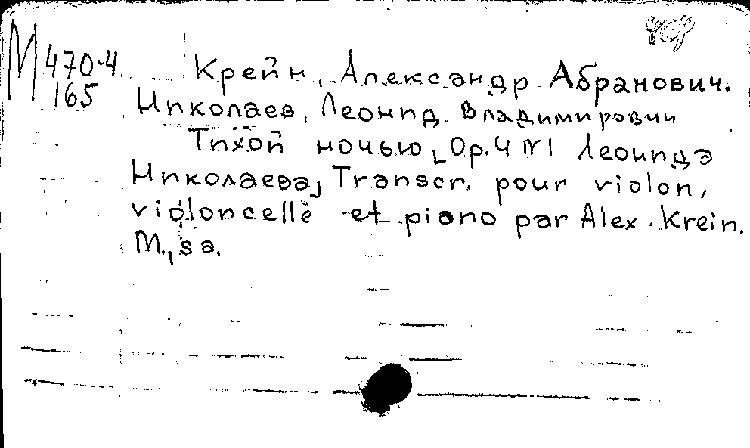 М 470-4
165
Крейн, Александр Абранович.
Николаев, Леонид Владимирович
Тихой ночью, [Ор. 4 N1 Леонида
Николаева] Transcr. pour violon,
violoncelle et piano par Alex. Krein.
М., sa.